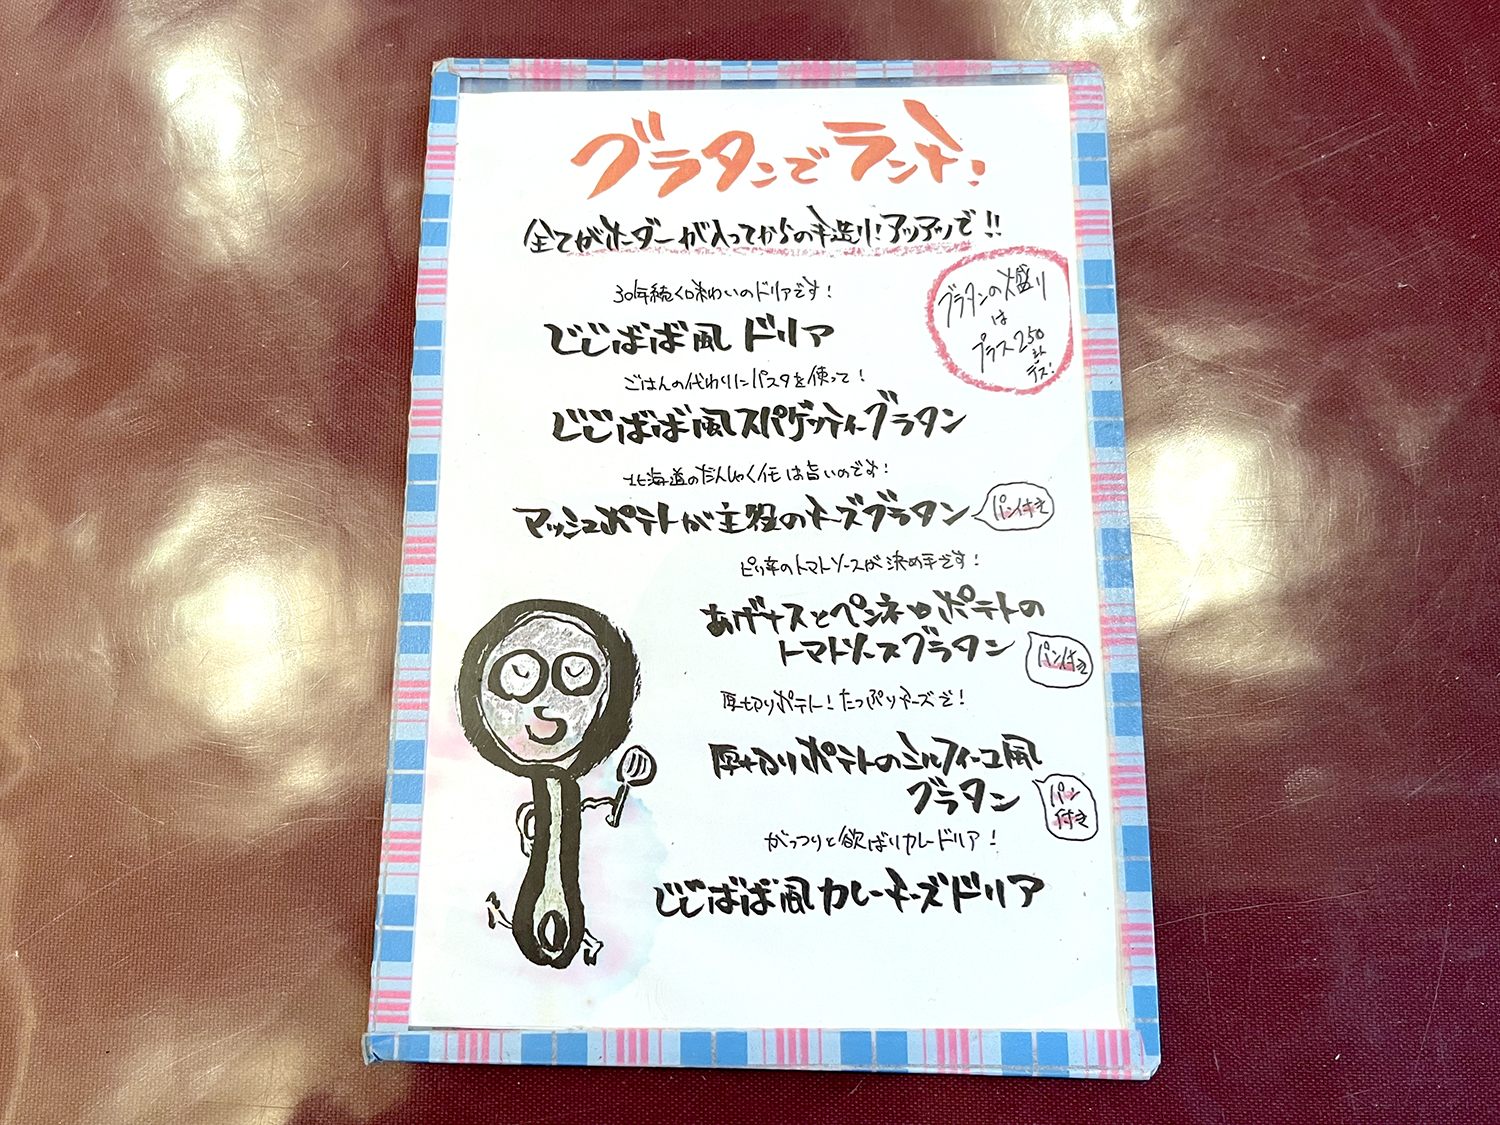 グラタンでランチ!
全てがオーダーが入ってからの手造り!アツアツで!!
グラタンの大盛り
は
プラス250
えん
デス!
30年続く口味わいのドリアです!
じじばば風ドリア
ごはんの代わりにパスタを使って!
じじばば風スパゲッティーグラタン
北海道のだんしゃくイモは旨いのです!
マッシュポテトが主役のチーズグラタン
パン付き
ピリ辛のトマトソースが決め手です!
あげナスとペンネとポテトの
トマトソースグラタン
パン付き
厚切りポテト!たっぷりチーズで!
厚切りポテトのミルフィーユ風
グラタン
パン
付き
がっつりと欲ばりカレードリア!
じじばば風カレーチーズドリア